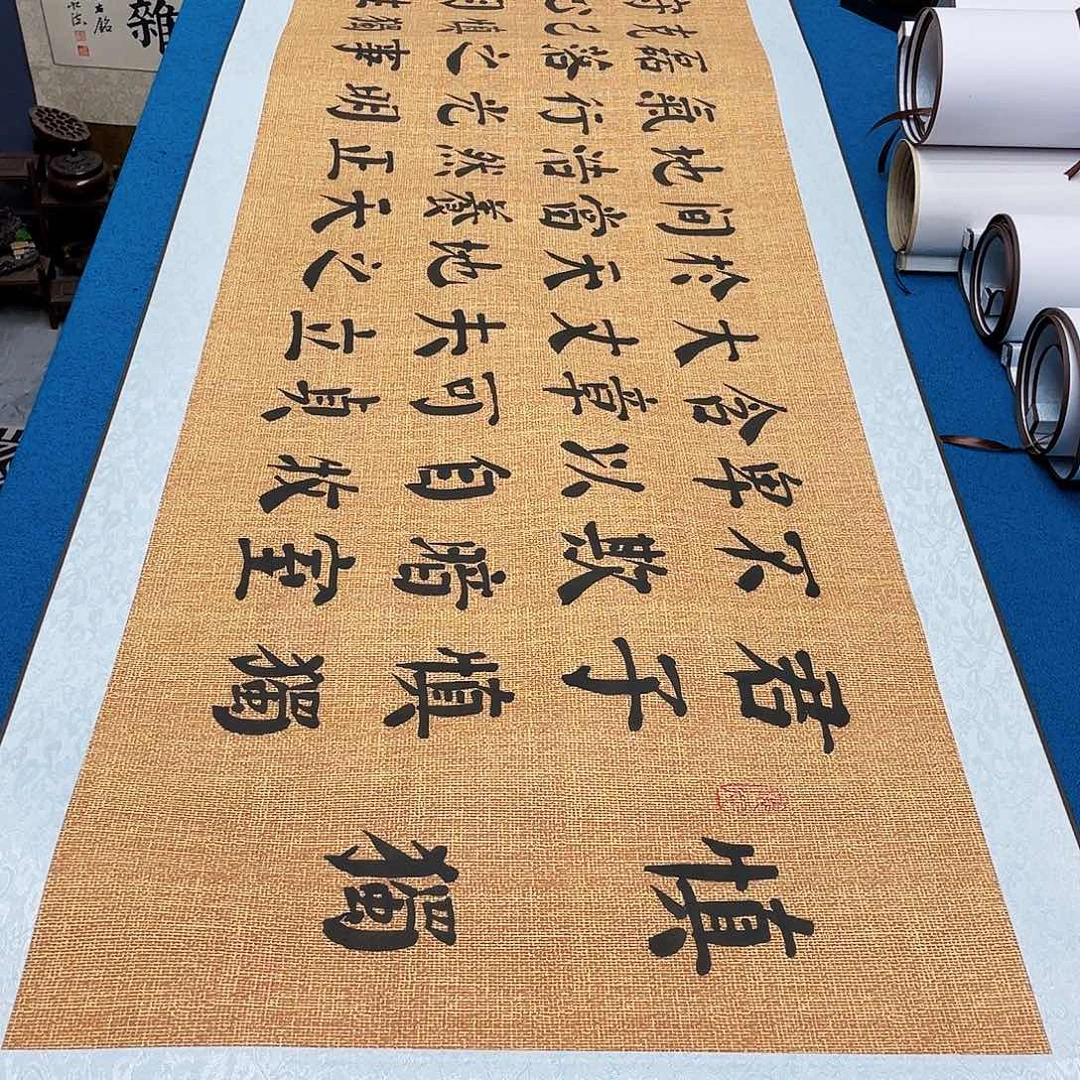 慎獨
君子慎獨
不欺暗室
卑以自牧
含章可貞
大丈夫立
於天地之
間當養天
地浩然正
氣行光明
磊落之事
克己慎獨
雜